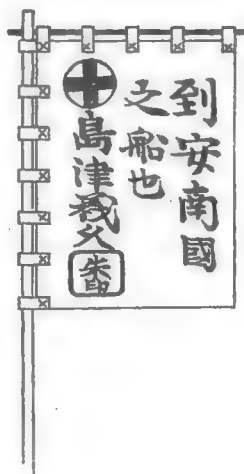 到安南國
之船也
島津義久
朱印